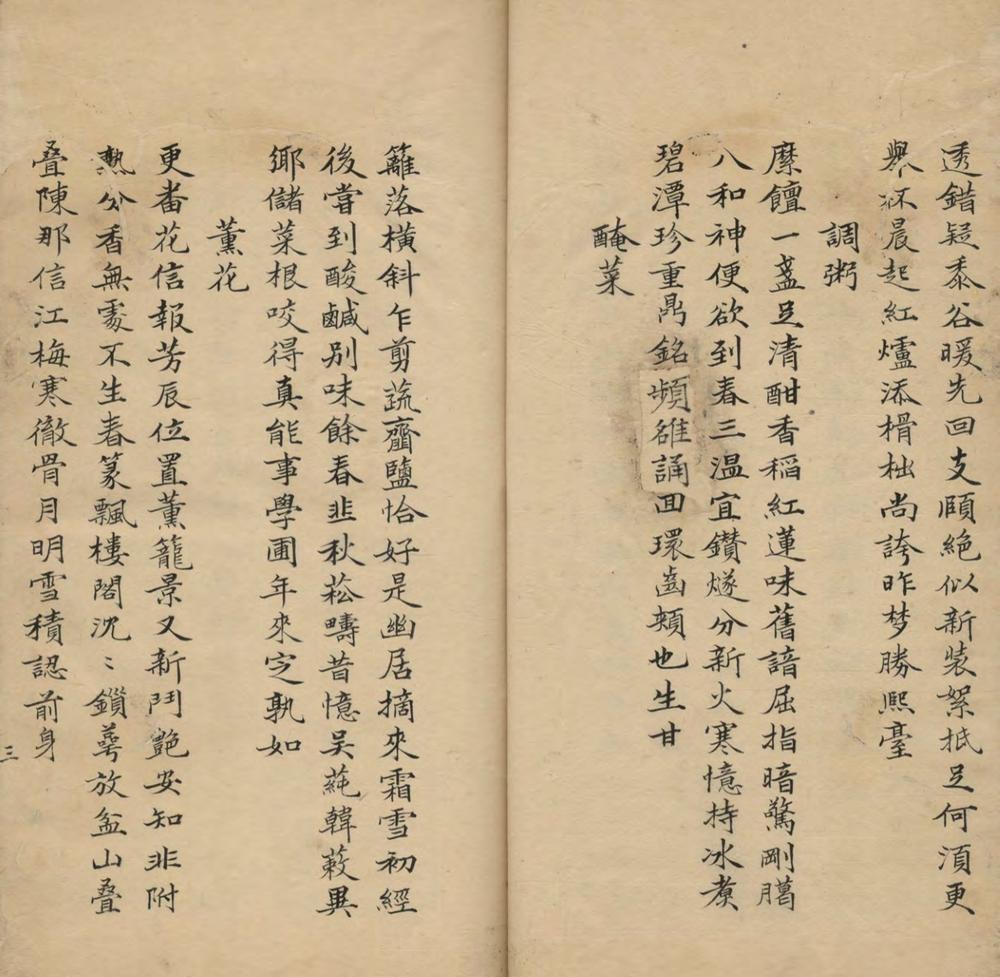 透錯疑黍谷暖先回支頤絕似新裝絮抵足何湏更
舉杯晨起紅爐添榾柮尚誇昨梦勝熙臺
調粥
糜饘一盞足清酣香稻紅蓮味舊諳屈指暗驚剛臈
八和神便欲到春三温宜鑽燧分新火寒憶持冰煑
碧潭珍重鼎銘頻雒誦囬環齒頰也生甘
醃菜
籬落横斜乍剪蔬虀鹽恰好是幽居摘來霜雪初經
後嘗到酸鹹别味餘春韭秋菘疇昔憶吴蒓韓蔌異
鄊儲菜根咬得真能事學圃年來定孰如
薰花
更畨花信報芳辰位置薰籠景又新鬥艷安知非附
熱分香無䖏不生春篆飄樓閣沈〻鎖蕚放盆山疊
疊陳那信江梅寒徹骨月明雪積認前身
三